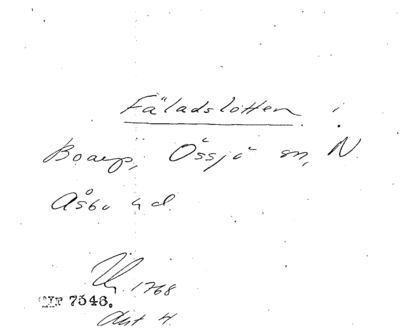 Fäladslotten i
Boarp, Össjö sn, N
Åsbo hd.
1768
7546.
Akt 4.